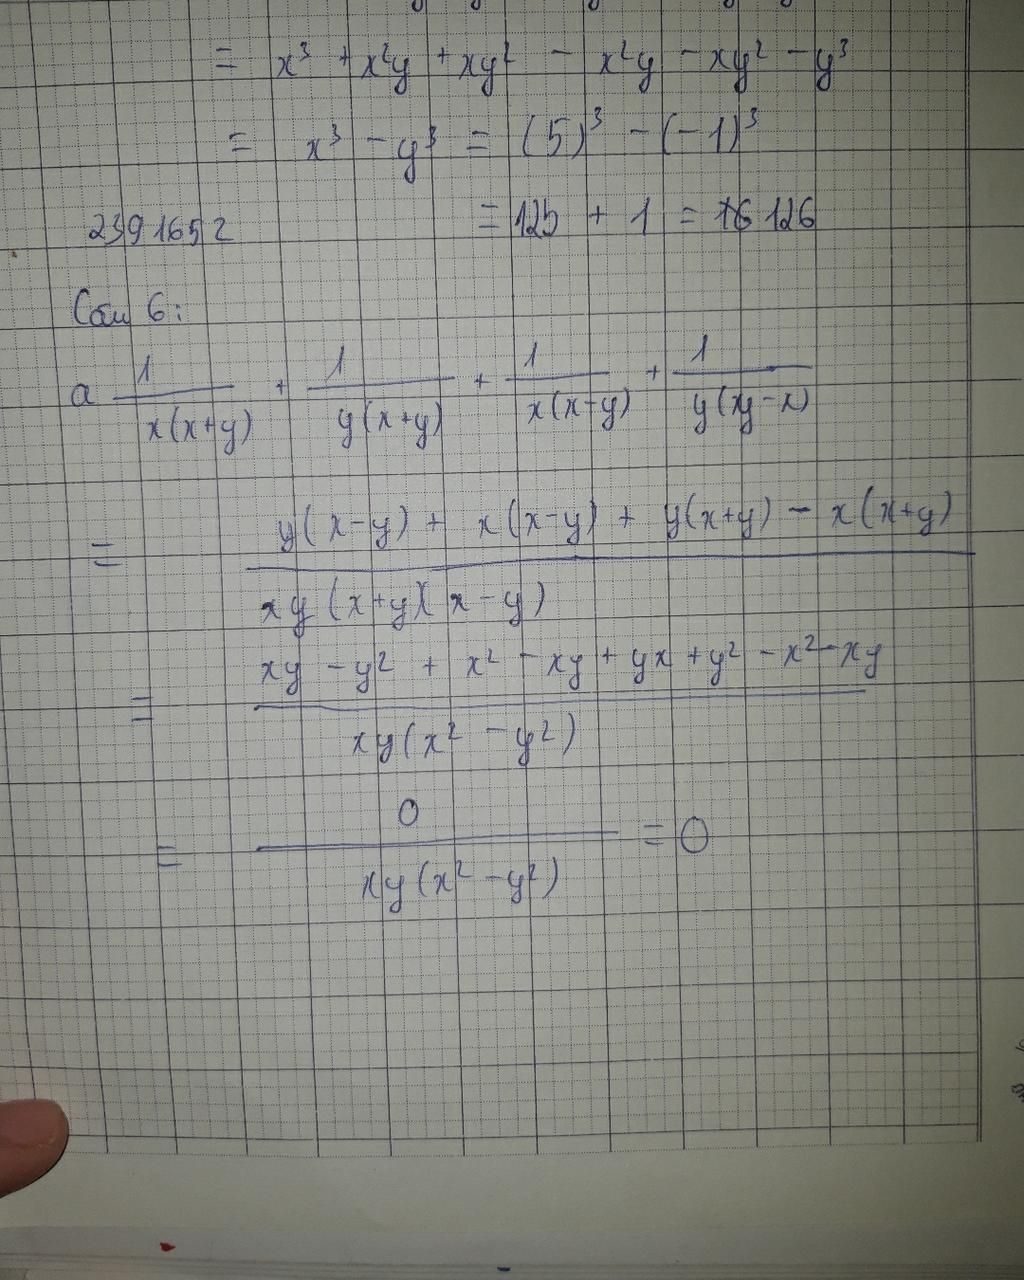 = x³ + x²y + xy² - x²y - xy² - y³
= x³ - y³ = (5)³ - (-1)³
2391652 = 125 + 1 = 126
Câu 6:
a 1/x(x+y) + 1/y(x+y) + 1/x(x-y) + 1/y(y-x)
= y(x-y) + x(x-y) + y(x+y) - x(x+y) / xy(x+y)(x-y)
= xy - y² + x² - xy + yx + y² - x² - xy / xy(x² - y²)
= 0 / xy(x² - y²) = 0